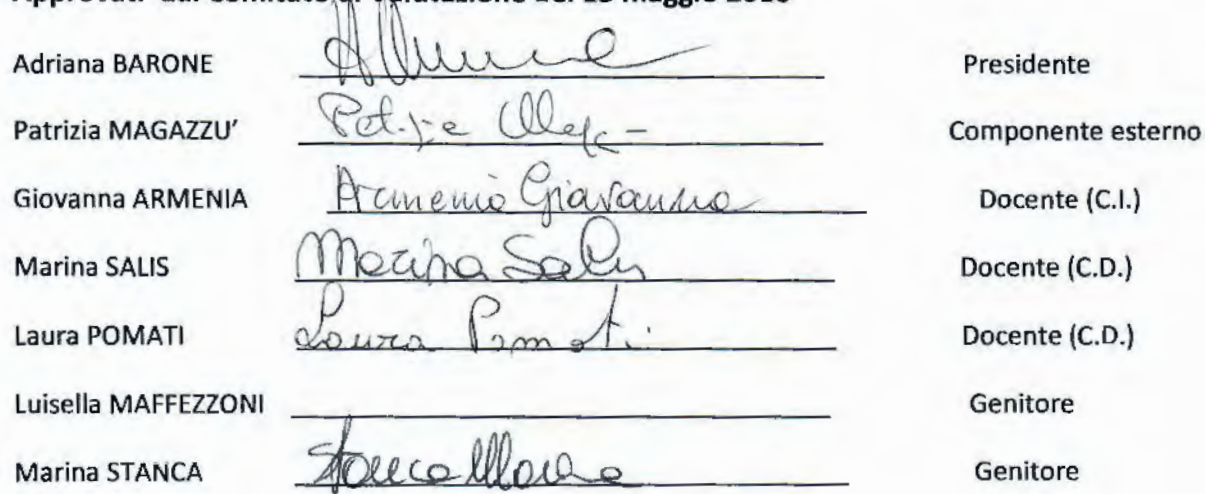 Approvati dal Comitato di Valutazione del
Adriana BARONE Presidente
Patrizia MAGAZZU' Componente esterno
Giovanna ARMENIA Armenia Giovanna Docente (C.I.)
Marina SALIS Marina Salis Docente (C.D.)
Laura POMATI Laura Pomati Docente (C.D.)
Luisella MAFFEZZONI Genitore
Marina STANCA Stanca Marina Genitore